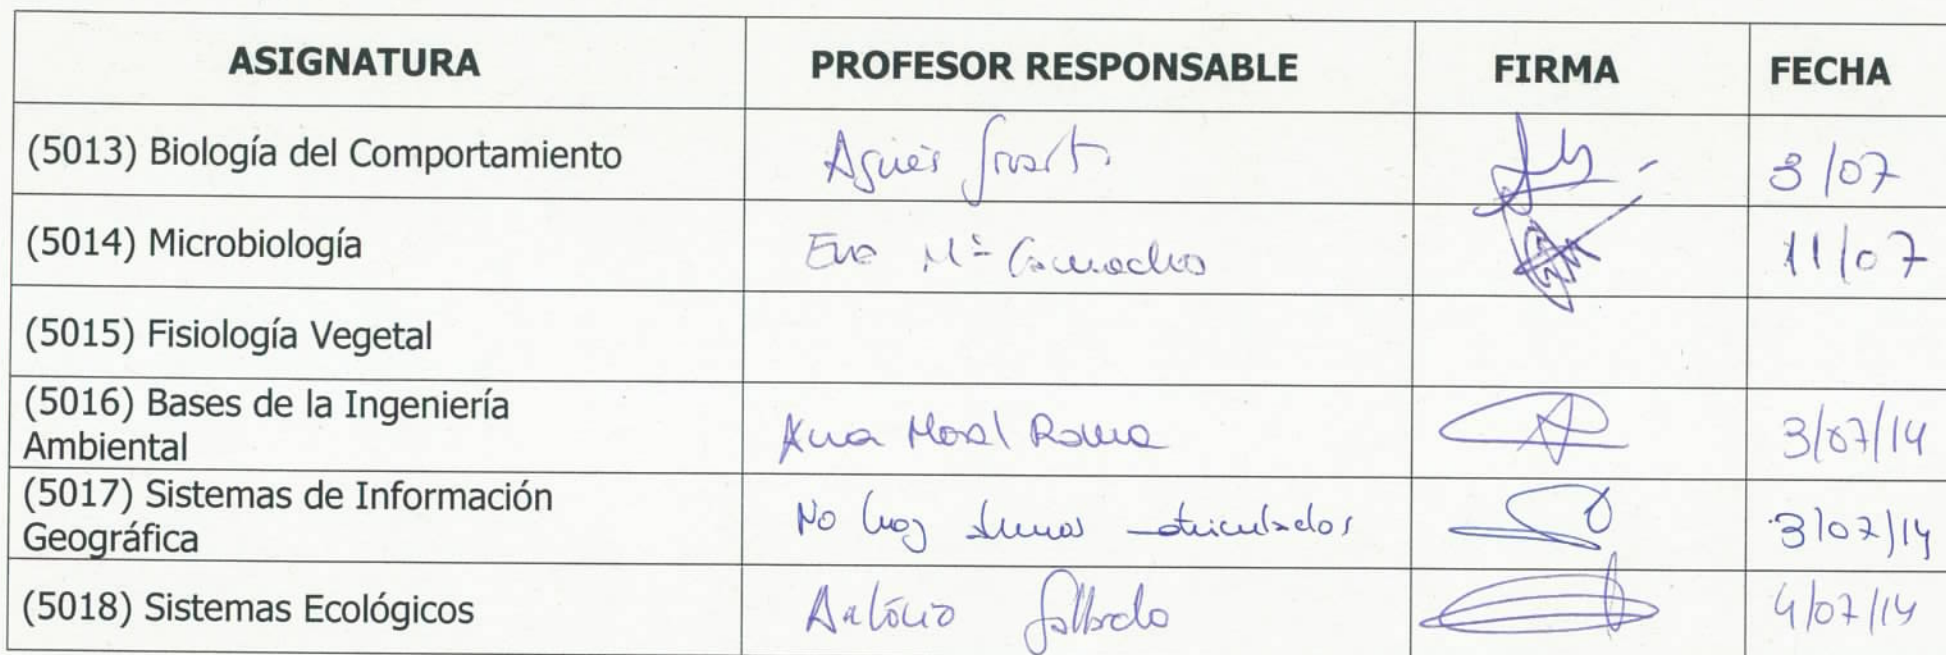 ASIGNATURA PROFESOR RESPONSABLE FIRMA FECHA
(5013) Biología del Comportamiento Agnès 3/07
(5014) Microbiología Eva Mª Camacho 11/07
(5015) Fisiología Vegetal
(5016) Bases de la Ingeniería
Ambiental Ana Moral Rama 3/07/14
(5017) Sistemas de Información
Geográfica No hay alumnos matriculados 3/07/14
(5018) Sistemas Ecológicos Antonio Gallardo 4/07/14